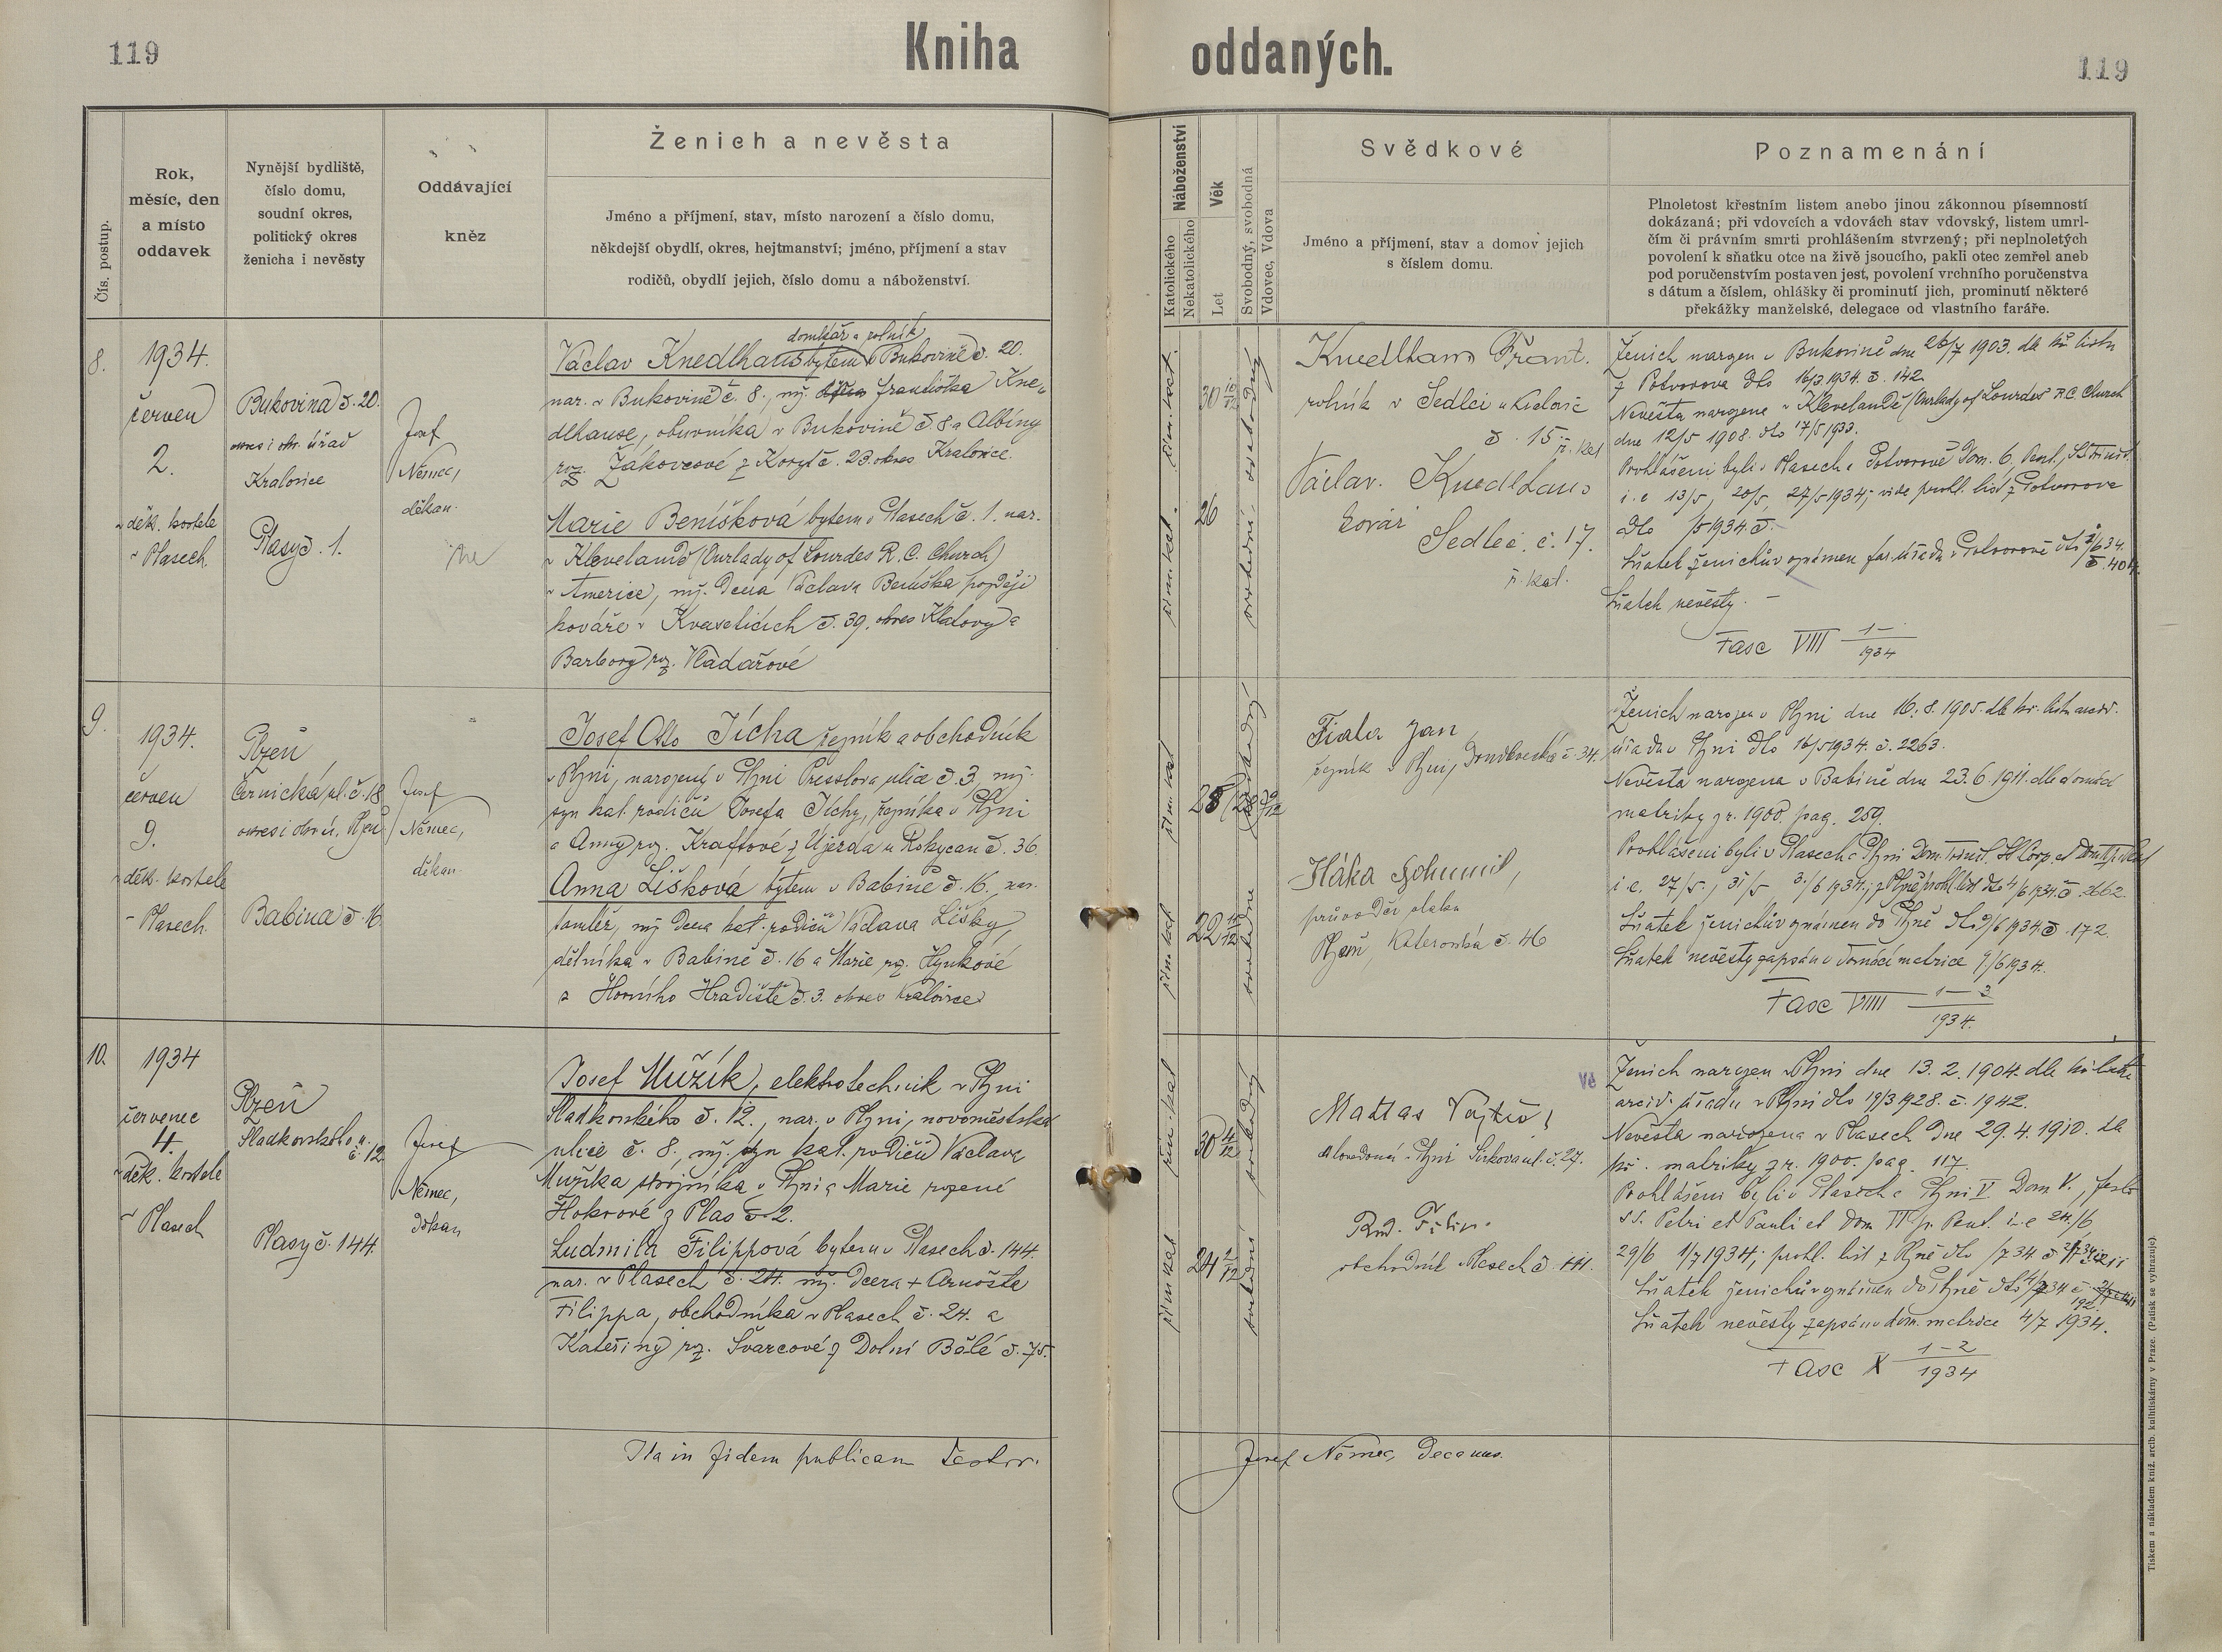 119
Kniha
oddaných.
119
Čís. postup.
Rok,
měsíc, den
a místo
oddavek
Nynější bydliště,
číslo domu,
soudní okres,
politický okres
ženicha i nevěsty
Oddávající
kněz
Ženich a nevěsta
Jméno a příjmení, stav, místo narození a číslo domu,
někdejší obydlí, okres, hejtmanství; jméno, příjmení a stav
rodičů, obydlí jejich, číslo domu a náboženství.
Náboženství
Katolického
Nekatolického
Věk
Let
Svobodný, svobodná
Vdovec, Vdova
Svědkové
Jméno a příjmení, stav a domov jejich
s číslem domu.
Poznamenání
Plnoletost křestním listem anebo jinou zákonnou písemností
dokázaná; při vdovcích a vdovách stav vdovský, listem umrl-
čím či právním smrti prohlášením stvrzený; při neplnoletých
povolení k sňatku otce na živě jsoucího, pakli otec zemřel aneb
pod poručenstvím postaven jest, povolení vrchního poručenstva
s dátum a číslem, ohlášky či prominutí jich, prominutí některé
překážky manželské, delegace od vlastního faráře.
8.
1934.
červen
2.
v děk. kostele
v Plasech.
Bukovina č. 20.
okres i okr. úřad
Kralovice
Plasy č. 1.
Josef
Němec,
děkan.
domkář a rolník
Václav Knedlhans bytem v Bukovině č. 20.
nar. v Bukovině č. 8., mž. Františka Kne-
dlhanse, obuvníka v Bukovině č. 8 a Albíny
roz. Žákovcové z Koryt č. 23. okres Kralovice.
Marie Benišková bytem v Plasech č. 1. nar.
v Klevelandě (Ourlady of Lourdes R. C. Church)
v Americe, mž. dcera Václava Beniška později
kováře v Kvaselicích č. 39. okres Klatovy a
Barbory roz. Vladařové
řím. kat.
30 10/12
svobodný
řím. kat.
26
svobodná
Knedlhans Frant.
rolník v Sedlci u Kralovic
č. 15 ř. kat
Václav Knedlhans
kovář
Sedlec č. 17.
ř. kat.
Ženich narozen v Bukovině dne 26/7 1903. dle kř. listu
z Potvorova dto 16/3.1934. č. 142.
Nevěsta narozena v Klevelandě (Ourlady of Lourdes R.C. Church
dne 12/5 1908. dto 17/5 1933.
Prohlášeni byli v Plasech a Potvorově Dom. 6. Pent., SS Trinit.
i. e 13/5, 20/5, 27/5 1934; vide prohl. list z Potvorova
dto /5 1934. č. -
Sňatek ženichův oznámen far. úřadu v Potvorově dto 2/6 34.
č. 404.
Sňatek nevěsty. -
Fasc VIII 1-/1934
9.
1934.
červen
9.
v děk. kostele
v Plasech.
Plzeň
Černická ul. č. 18
okres i okr. ú. Plzeň
Babina č. 16.
Josef
Němec,
děkan.
Josef Otto Jícha řezník a obchodník
v Plzni, narozený v Plzni Presslova ulice č. 3, mž.
syn kat. rodičů Josefa Jíchy, řezníka v Plzni
a Anny roz. Kraftové z Újezda u Rokycan č. 36.
Anna Lišková bytem v Babině č. 16., nar.
tamtéž, mž. dcera kat. rodičů Václava Lišky,
dělníka v Babině č. 16 a Marie roz. Hynkové
z Horního Hradiště č. 3. okres Kralovice
řím. kat
28
svobodný
řím. kat
22
svobodná
Fiala Jan
řezník v Plzni, Doudlevecká č. 34.
Háka Bohumil,
průvodčí vlaku
Plzeň, Koterovská č. 46
Ženich narozen v Plzni dne 16. 8. 1905. dle kř. listu arciděk.
úřadu v Plzni dto 16/5 1934. č. 2263.
Nevěsta narozena v Babině dne 23. 6. 1911. dle domácí
matriky z r. 1900. pag. 259.
Prohlášeni byli v Plasech a Plzni
i. e. 27/5., 31/5 3./6 1934.; z Plzně prohl. list dto 4/6 1934. č.
Sňatek ženichův oznámen do Plzně dto 9/6 1934 č. 172.
Sňatek nevěsty zapsán v domácí matrice 9./6 1934.
Fasc VIIII 1-3/1934.
10.
1934
červenec
4.
v děk. kostele
v Plasech
Plzeň
Sladkovského u.
č. 12
Plasy č. 144.
Josef
Němec,
děkan
Josef Mužík, elektrotechnik v Plzni
Sladkovského č. 12., nar. v Plzni, novoměstská
ulice č. 8. mž. syn kat. rodičů Václava
Mužíka strojníka v Plzni a Marie rozené
Hokrové z Plas č. 2.
Ludmila Filippová bytem v Plasech č. 144.
nar. v Plasech č. 24. mž. dcera + Arnošta
Filippa, obchodníka v Plasech č. 24. a
Kateřiny roz. Švarcové z Dolní Bělé č. 75.
řím. kat
30 4/12
svobodný
řím. kat
24 2/12
svobodná
Mattas Vojtěch
v Plzni č. 27.
Rud. Filip.
obchodník v Plasech č. 141.
Ženich narozen v Plzni dne 13. 2. 1904. dle kř. listu
arciď. úřadu v Plzni dto 19/3 1928. č. 1942.
Nevěsta narozena v Plasech dne 29. 4. 1910. dle
kř. matriky z r. 1900. pag. 117.
Prohlášeni byli v Plasech a Plzni V Dom V., festo
SS. Petri et Pauli et Dom VI p. Pent. i. e 24./6
29/6 1/7 1934; prohl. list z Plzně dto /7 34 č.
Sňatek ženichův oznámen do Plzně dto 4/7 34 č.
192.
Sňatek nevěsty zapsán v dom. matrice 4/7 1934.
Fasc X 1-2/1934
Ita in fidem publicam testor.
Josef Němec, Decanus.
Tiskem a nákladem kníž. arcib. knihtiskárny v Praze. (Patisk se vyhrazuje).